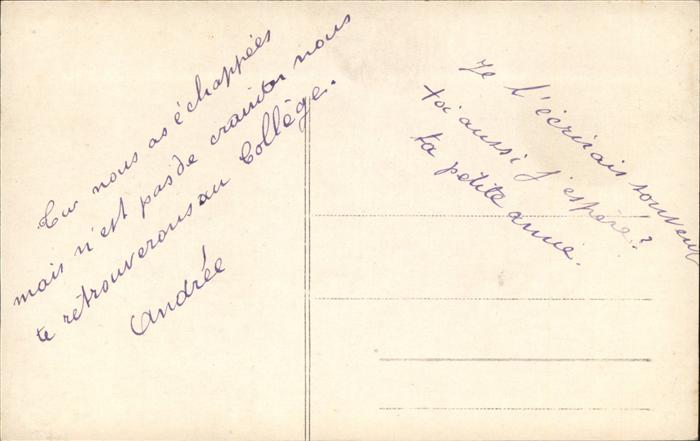 Tu nous as échappées
mais n'est pas de crainte nous
te retrouverons au Collège.
Andrée
Je t'écrirais souvent
toi aussi j'espère?
ta petite amie.